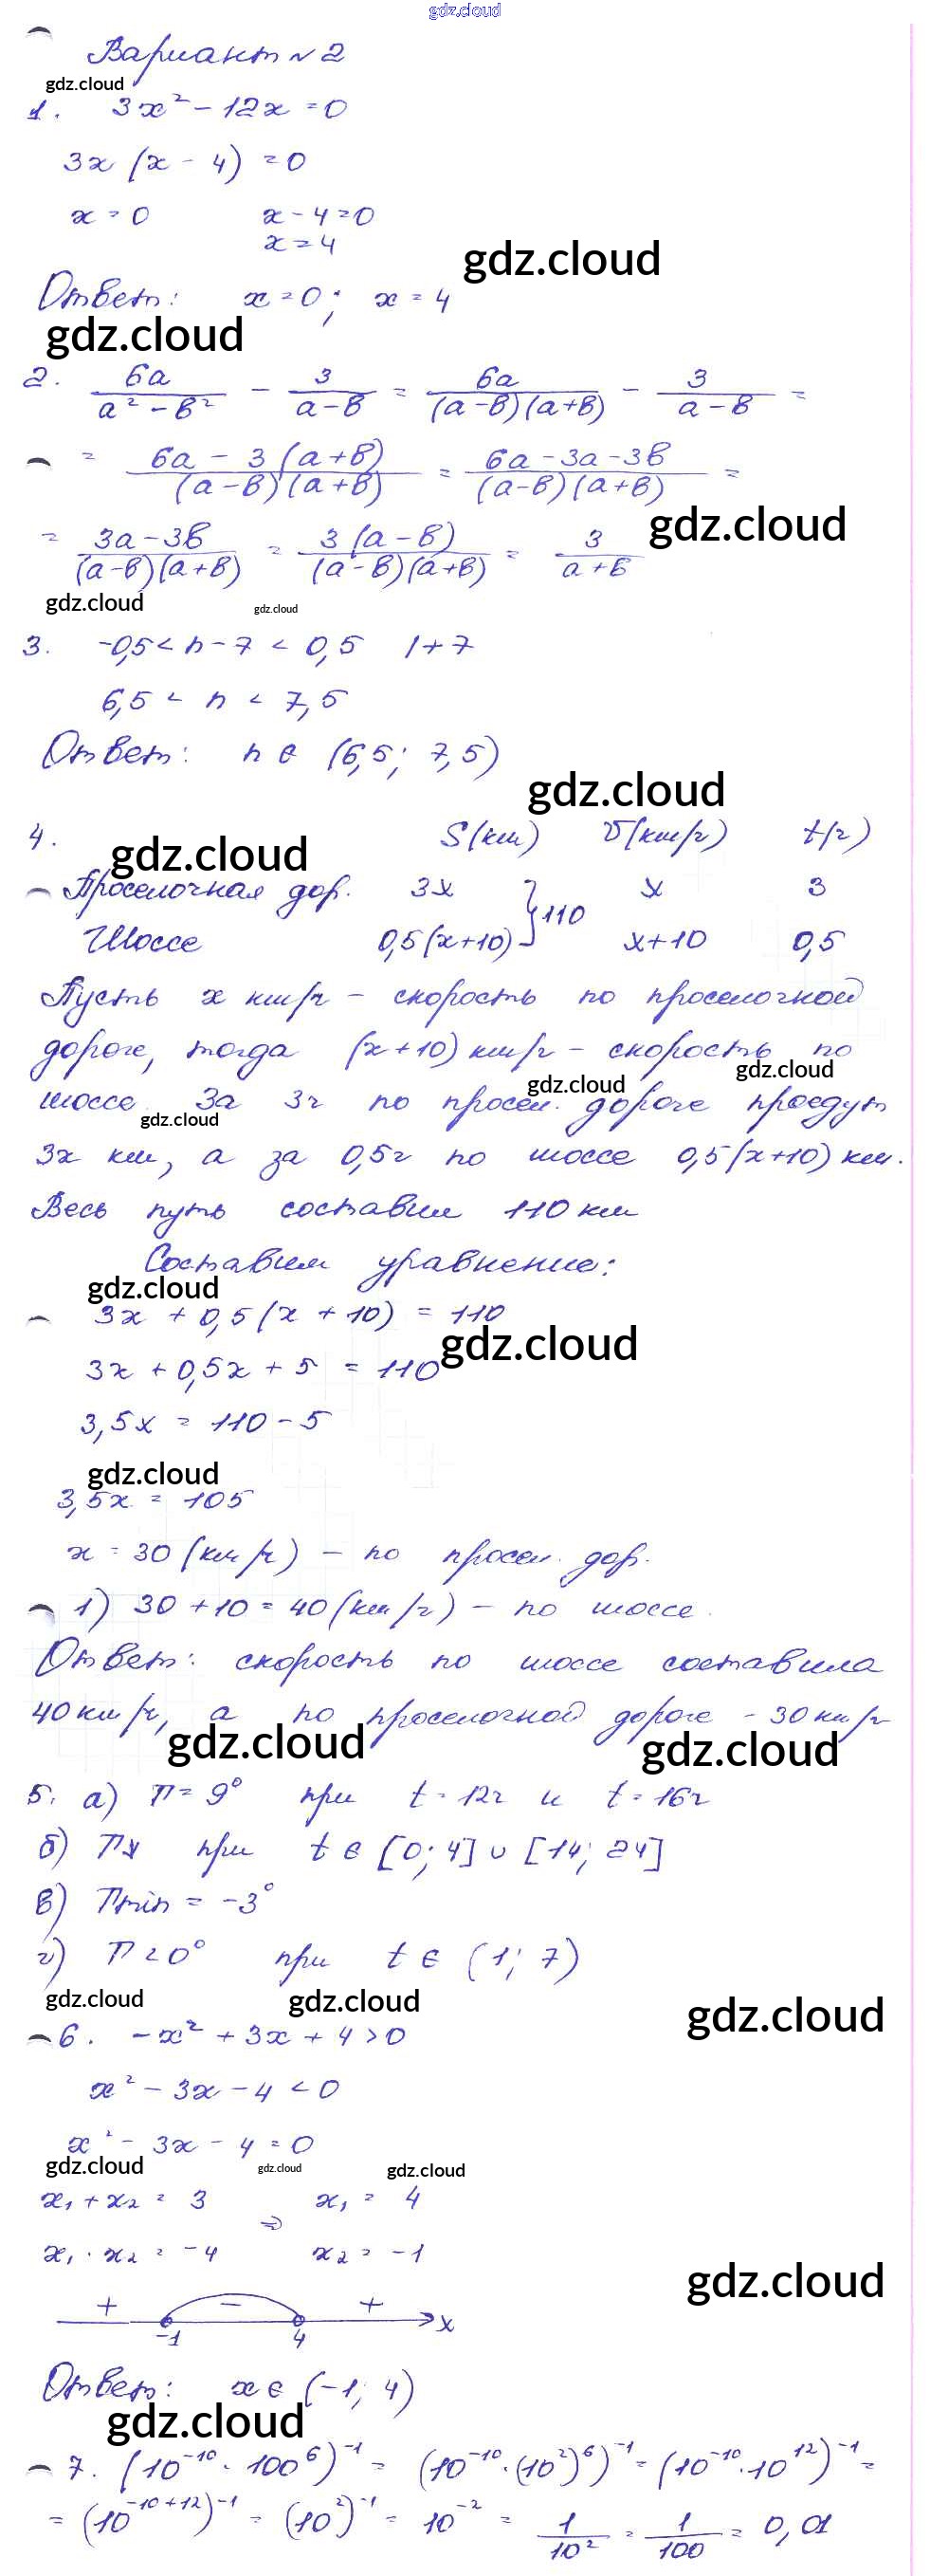 gdz.cloud
Вариант № 2
gdz.cloud
1. 3x² - 12x = 0
3x (x - 4) = 0
x = 0 x - 4 = 0
x = 4
gdz.cloud
Ответ: x = 0; x = 4
gdz.cloud
2. 6a/(a² - в²) - 3/(a - в) = 6a/((a - в)(a + в)) - 3/(a - в) =
= (6a - 3(a + в))/((a - в)(a + в)) = (6a - 3a - 3в)/((a - в)(a + в)) =
gdz.cloud
= (3a - 3в)/((a - в)(a + в)) = 3(a - в)/((a - в)(a + в)) = 3/(a + в)
gdz.cloud gdz.cloud
3. -0,5 < n - 7 < 0,5 | + 7
6,5 < n < 7,5
Ответ: n ∈ (6,5; 7,5)
gdz.cloud
4. S(км) V(км/ч) t(ч)
gdz.cloud
Проселочная дор. 3x x 3
} 110
Шоссе 0,5(x+10) x+10 0,5
Пусть x км/ч - скорость по проселочной
дороге, тогда (x+10) км/ч - скорость по
gdz.cloud gdz.cloud
шоссе. За 3ч по просел. дороге проедут
gdz.cloud
3x км, а за 0,5ч по шоссе 0,5(x+10) км.
Весь путь составил 110 км
Составим уравнение:
gdz.cloud
3x + 0,5(x + 10) = 110
gdz.cloud
3x + 0,5x + 5 = 110
3,5x = 110 - 5
gdz.cloud
3,5x = 105
x = 30 (км/ч) - по просел. дор.
1) 30 + 10 = 40 (км/ч) - по шоссе.
Ответ: скорость по шоссе составила
40 км/ч, а по проселочной дороге - 30 км/ч
gdz.cloud gdz.cloud
5. а) T = 9° при t = 12ч и t = 16ч
б) T↘ при t ∈ [0; 4] ∪ [14; 24]
в) Tmin = -3°
г) T < 0° при t ∈ (1; 7)
gdz.cloud gdz.cloud gdz.cloud
6. -x² + 3x + 4 > 0
x² - 3x - 4 < 0
x² - 3x - 4 = 0
gdz.cloud gdz.cloud gdz.cloud
x₁ + x₂ = 3 ⇒ x₁ = 4
x₁ · x₂ = -4 x₂ = -1
gdz.cloud
+ - +
-1 4 x
Ответ: x ∈ (-1; 4)
gdz.cloud
7. (10⁻¹⁰ · 100⁶)⁻¹ = (10⁻¹⁰ · (10²)⁶)⁻¹ = (10⁻¹⁰ · 10¹²)⁻¹ =
= (10⁻¹⁰⁺¹²)⁻¹ = (10²)⁻¹ = 10⁻² = 1/10² = 1/100 = 0,01